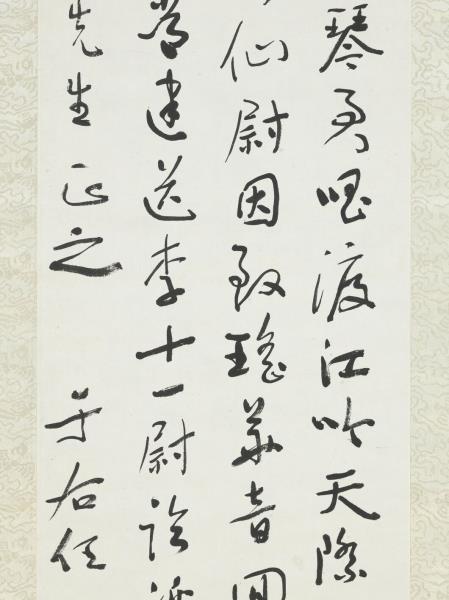 琴君唱渡江吟天際
仙尉因致瑤華音回
常建送李十一尉臨
先生正之
于右任